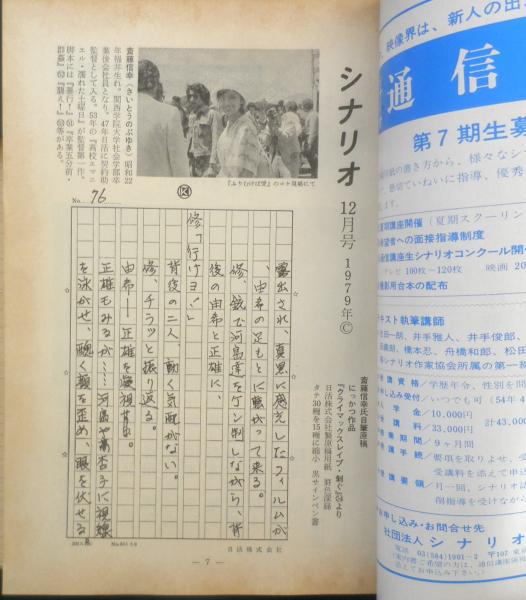 シナリオ
12月号 1979年©
斎藤信幸氏自筆原稿
にっかつ作品
『クライマックスレイプ・剝ぐ』より
日活株式会社製原稿用紙
タテ30糎を15糎に縮小 黒サインペン書
『ふりむけば愛』のロケ現場にて
斎藤信幸(さいとうのぶゆき) 昭和22
年福井生れ。関西学院大学社会学部卒
業後会社員となり、47年日活に契約助
監督として入る。53年の『高校エマニ
エル・濡れた土曜日』が監督第一作。
No. 76
露出され、真黒に感光したフィルムが
、由希の足もとに転がって来る。
修、銃で河島達をケン制しながら、背
後の由希と正雄に、
修「行けヨ!」
背後の二人、動く気配がない。
修、チラッと振り返る。
由希――正雄を凝視する。
を泳がせ、醜く顔を歪め、眼を伏せる。
日活株式会社
― 7 ―
映像界は、新人の出
通信
第7期生募
の書き方から、様々なシ
切ていねいに指導、優秀
講座開催(夏期スクーリン
者への面接指導制度
信講座生シナリオコンクール開
テレビ 100枚～120枚 映画 20
影用台本の配布
キスト執筆講師
井手雅人、井手俊郎、
橋本忍、舟橋和郎、松田
シナリオ作家協会所属の第一
資格/学歴年令、性別を問
申し込み受付/いつでも可(54年4
学金/10,000円
講料/33,000円 計43,000
業期間/9ヶ月間
講手続/要項を取りよせ、受
受講料を添えて申込
講要領/月一回、シナリオ
開指導を受けなが
申し込み・お問合せ先
社団法人 シナリオ
電話 03(584)1901-2 〒107 東京